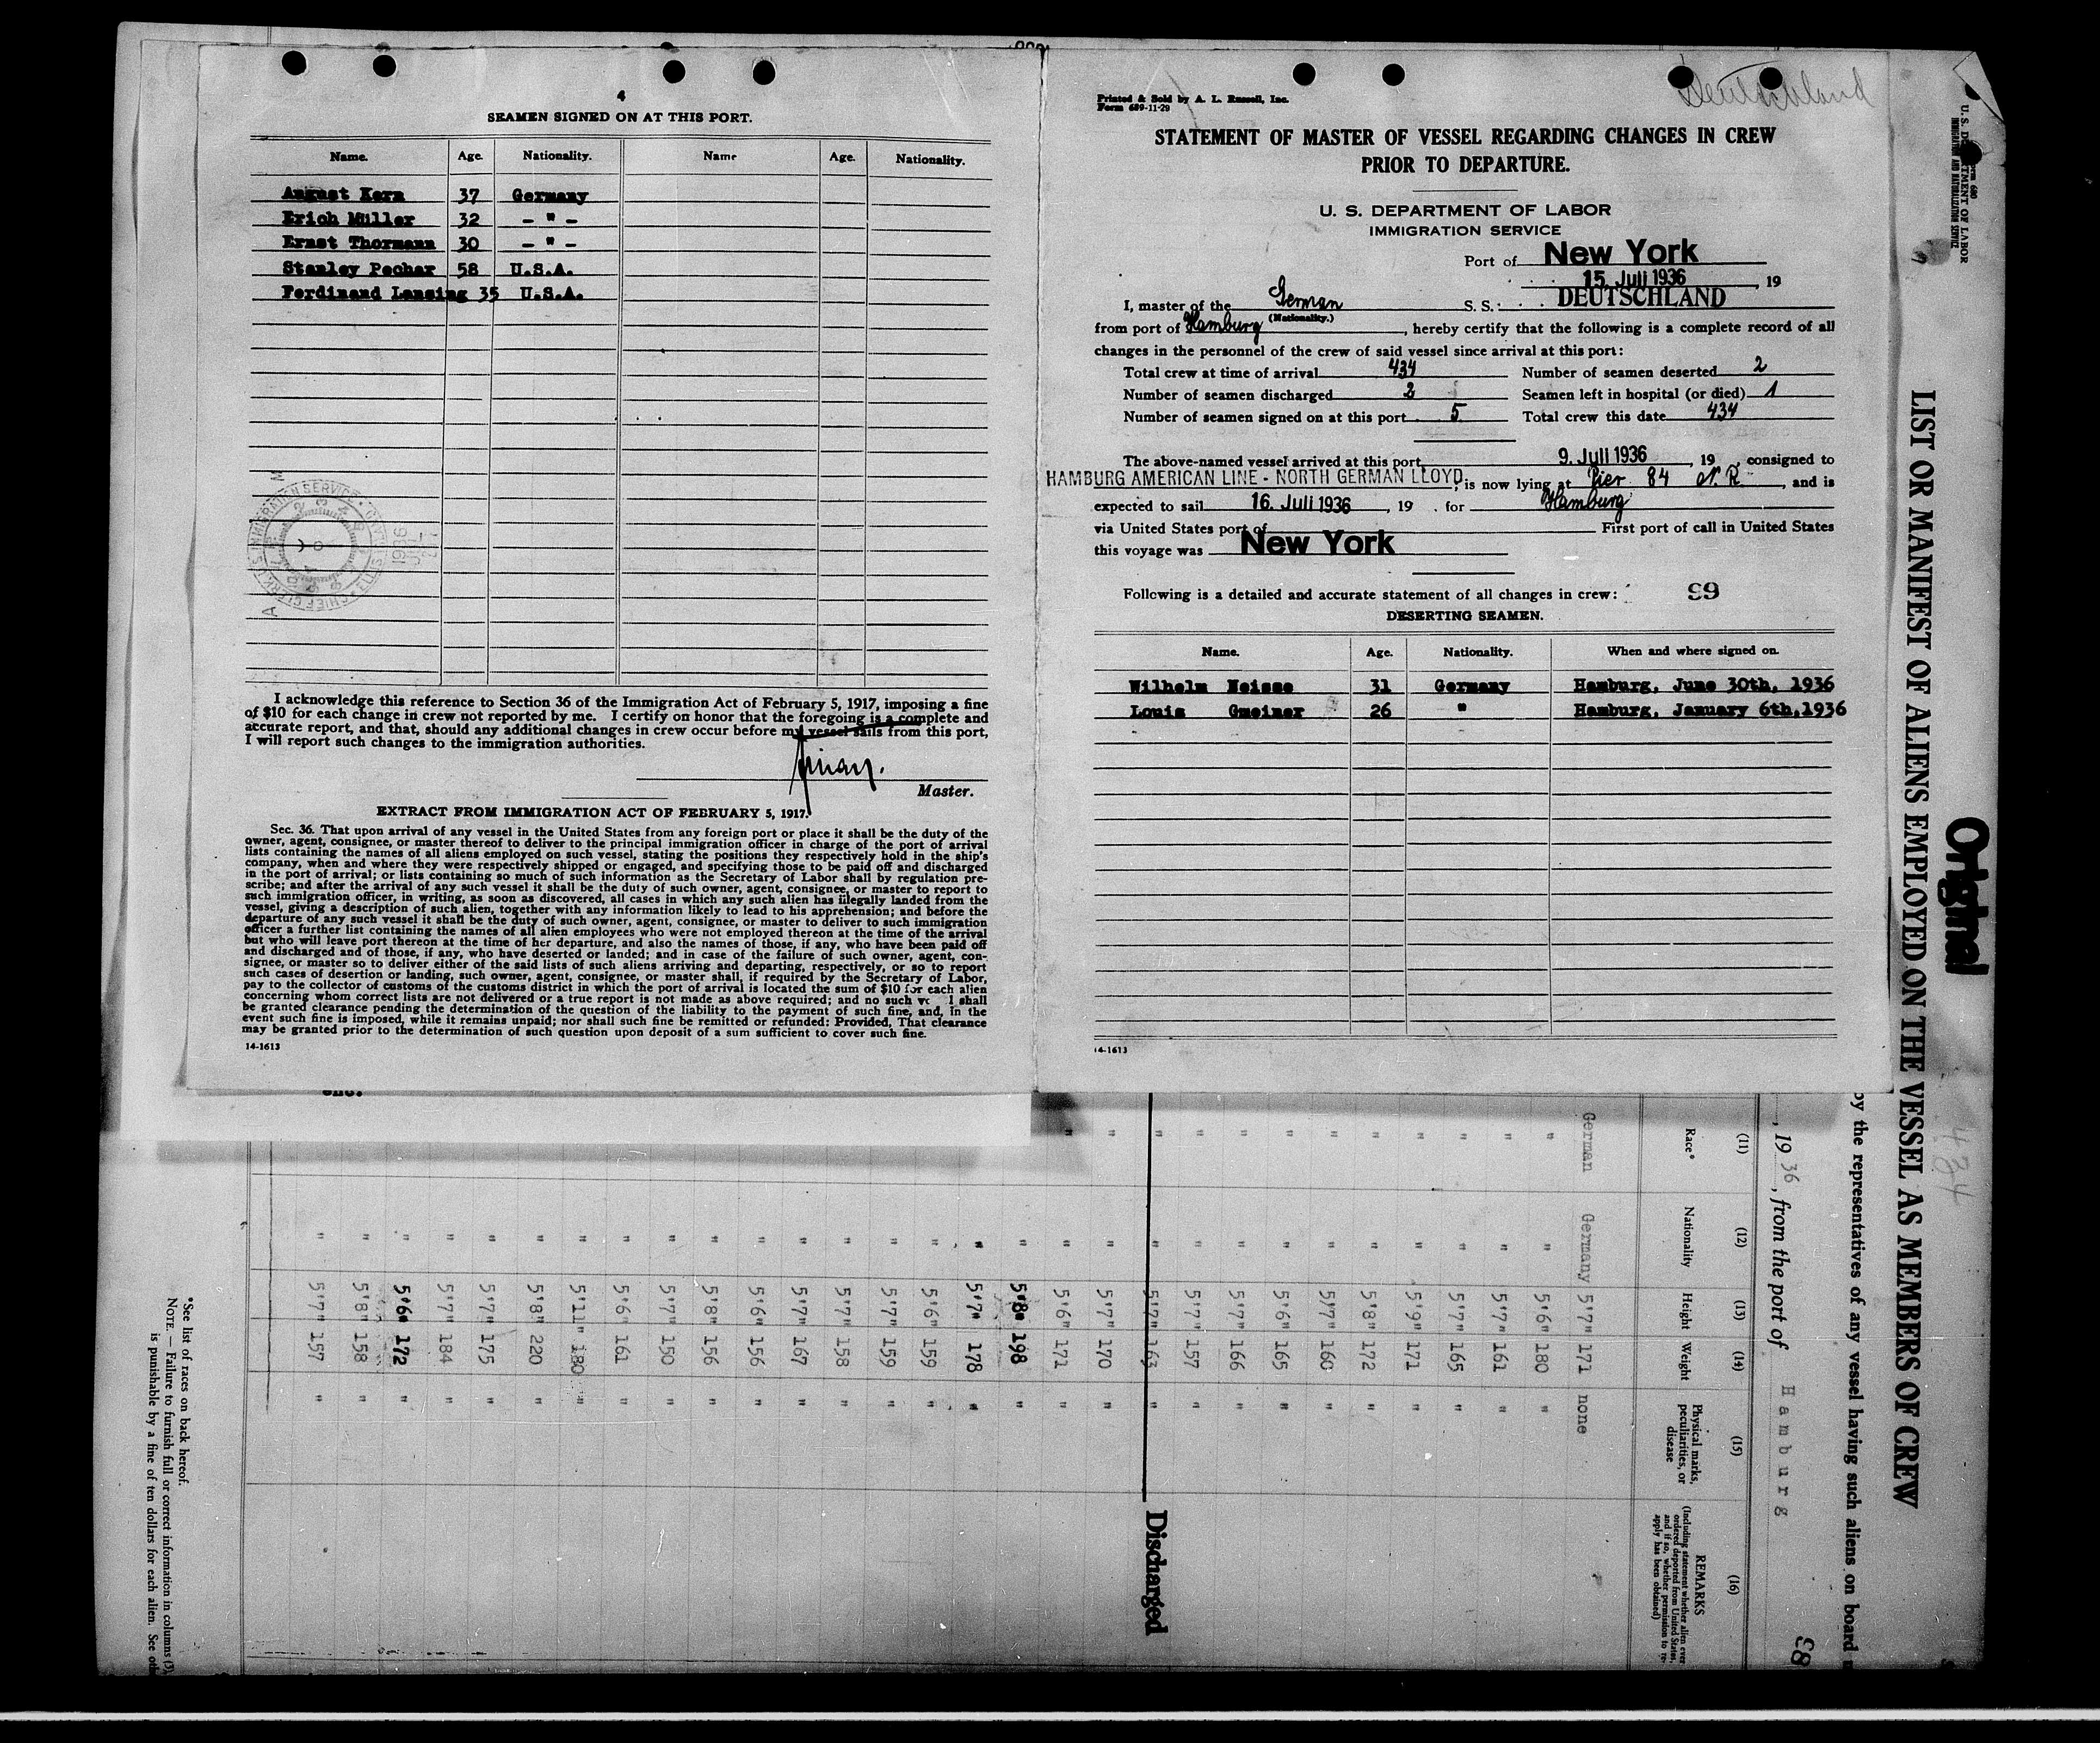 4
SEAMEN SIGNED ON AT THIS PORT.
Name. Age. Nationality. Name Age. Nationality.
August Kern 37 Germany
Erich Müller 32 - " -
Ernst Thormann 30 - " -
Stanley Pechar 58 U.S.A.
Ferdinand Lansing 35 U.S.A.
I acknowledge this reference to Section 36 of the Immigration Act of February 5, 1917, imposing a fine
of $10 for each change in crew not reported by me. I certify on honor that the foregoing is a complete and
accurate report, and that, should any additional changes in crew occur before my vessel sails from this port,
I will report such changes to the immigration authorities.
Master.
EXTRACT FROM IMMIGRATION ACT OF FEBRUARY 5, 1917.
Sec. 36. That upon arrival of any vessel in the United States from any foreign port or place it shall be the duty of the
owner, agent, consignee, or master thereof to deliver to the principal immigration officer in charge of the port of arrival
lists containing the names of all aliens employed on such vessel, stating the positions they respectively hold in the ship's
company, when and where they were respectively shipped or engaged, and specifying those to be paid off and discharged
in the port of arrival; or lists containing so much of such information as the Secretary of Labor shall by regulation pre-
scribe; and after the arrival of any such vessel it shall be the duty of such owner, agent, consignee, or master to report to
such immigration officer, in writing, as soon as discovered, all cases in which any such alien has illegally landed from the
vessel, giving a description of such alien, together with any information likely to lead to his apprehension; and before the
departure of any such vessel it shall be the duty of such owner, agent, consignee, or master to deliver to such immigration
officer a further list containing the names of all alien employees who were not employed thereon at the time of the arrival
but who will leave port thereon at the time of her departure, and also the names of those, if any, who have been paid off
and discharged and of those, if any, who have deserted or landed; and in case of the failure of such owner, agent, con-
signee, or master so to deliver either of the said lists of such aliens arriving and departing, respectively, or so to report
such cases of desertion or landing, such owner, agent, consignee, or master shall, if required by the Secretary of Labor,
pay to the collector of customs of the customs district in which the port of arrival is located the sum of $10 for each alien
concerning whom correct lists are not delivered or a true report is not made as above required; and no such ve l shall
be granted clearance pending the determination of the question of the liability to the payment of such fine, and, in the
event such fine is imposed, while it remains unpaid; nor shall such fine be remitted or refunded: Provided, That clearance
may be granted prior to the determination of such question upon deposit of a sum sufficient to cover such fine.
14-1613
Deutschland
Printed & Sold by A. L. Russell, Inc.
Form 689-11-29
STATEMENT OF MASTER OF VESSEL REGARDING CHANGES IN CREW
PRIOR TO DEPARTURE.
U. S. DEPARTMENT OF LABOR
IMMIGRATION SERVICE
Port of New York
15. Juli 1936, 19
I, master of the German S. S. DEUTSCHLAND
(Nationality.)
from port of Hamburg, hereby certify that the following is a complete record of all
changes in the personnel of the crew of said vessel since arrival at this port:
Total crew at time of arrival 434 Number of seamen deserted 2
Number of seamen discharged 2 Seamen left in hospital (or died) 1
Number of seamen signed on at this port 5 Total crew this date 434
The above-named vessel arrived at this port 9. Juli 1936, 19 consigned to
HAMBURG AMERICAN LINE - NORTH GERMAN LLOYD, is now lying at Pier 84 N. R., and is
expected to sail 16. Juli 1936, 19 . for Hamburg
via United States port of First port of call in United States
this voyage was New York
Following is a detailed and accurate statement of all changes in crew: 99
DESERTING SEAMEN.
Name. Age. Nationality. When and where signed on.
Wilhelm Neisse 31 Germany Hamburg, June 30th, 1936
Louis Gmeiner 26 " Hamburg, January 6th,1936
14-1613
U. S. DEPARTMENT OF LABOR
IMMIGRATION AND NATURALIZATION SERVICE
Original
LIST OR MANIFEST OF ALIENS EMPLOYED ON THE VESSEL AS MEMBERS OF CREW
434
by the representatives of any vessel having such aliens on board
, 19 36, from the port of Hamburg
83
(11) (12) (13) (14) (15) (16)
Race* Nationality Height Weight Physical marks, peculiarities, or disease REMARKS
(Including statement whether alien ever ordered deported from United States, and if so, whether permission to re-apply has been obtained)
German Germany 5'7" 171 none
" " 5'6" 180 "
" " 5'7" 161 "
" " 5'7" 165 "
" " 5'9" 171 "
" " 5'8" 172 "
" " 5'7" 160 "
" " 5'6" 165 "
" " 5'7" 166 "
" " 5'7" 157 "
" " 5'7" 163 " Discharged
" " 5'7" 170 "
" " 5'6" 171 "
" 5'8" 198 "
" 5'7" 178 "
" 5'6" 159 "
" 5'7" 159 "
" 5'7" 158 "
" 5'7" 167 "
" 5'6" 156 "
" 5'8" 156 "
" 5'7" 150 "
" 5'6" 161 "
" 5'11" 180 "
" 5'8" 220 "
" 5'7" 175 "
" 5'7" 184 "
" 5'6" 172 "
" 5'8" 158 "
" 5'7" 157 "
*See list of races on back hereof.
NOTE.—Failure to furnish full or correct information in columns (3),
is punishable by a fine of ten dollars for each alien. See